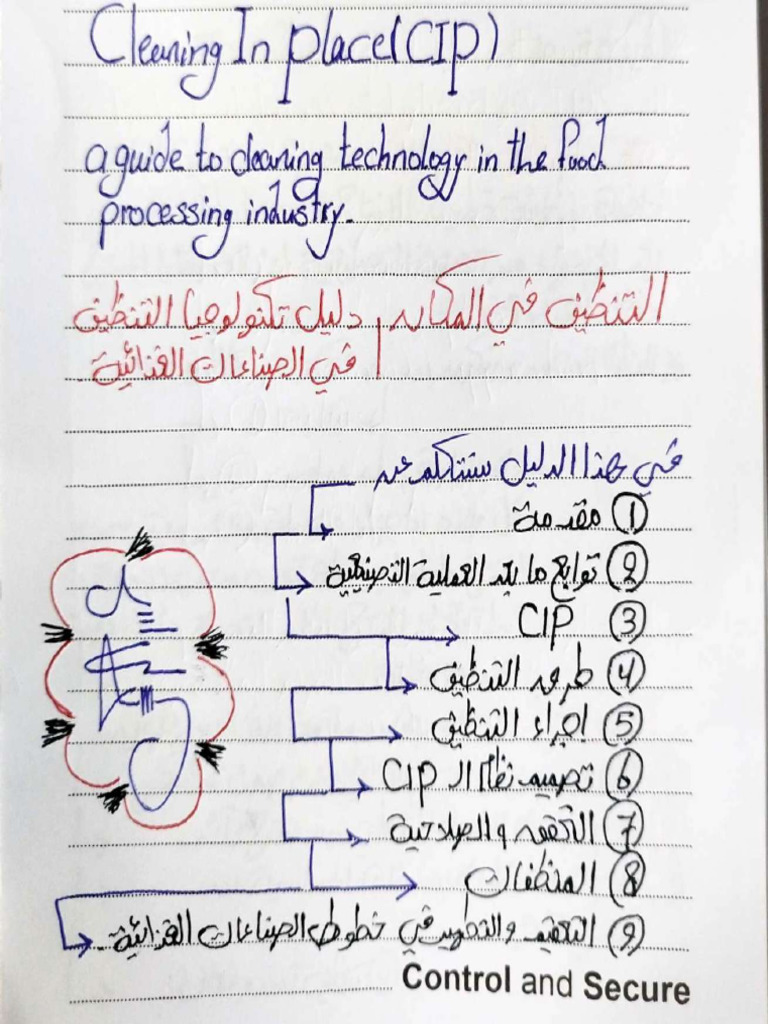 Cleaning In place (CIP)
a guide to cleaning technology in the food
processing industry.
التنظيف في المكان | دليل تكنولوجيا التنظيف
في الصناعات الغذائية
في هذا الدليل سنتكلم عن
① مقدمة
② توابع ما بعد العملية التصنيعية
③ CIP
④ طرق التنظيف
⑤ إجراء التنظيف
⑥ تصميم نظام الـ CIP
⑦ التحقق والصلاحية
⑧ المنظفات
⑨ التعقيم والتطهير في خطوط الصناعات الغذائية.
Control and Secure